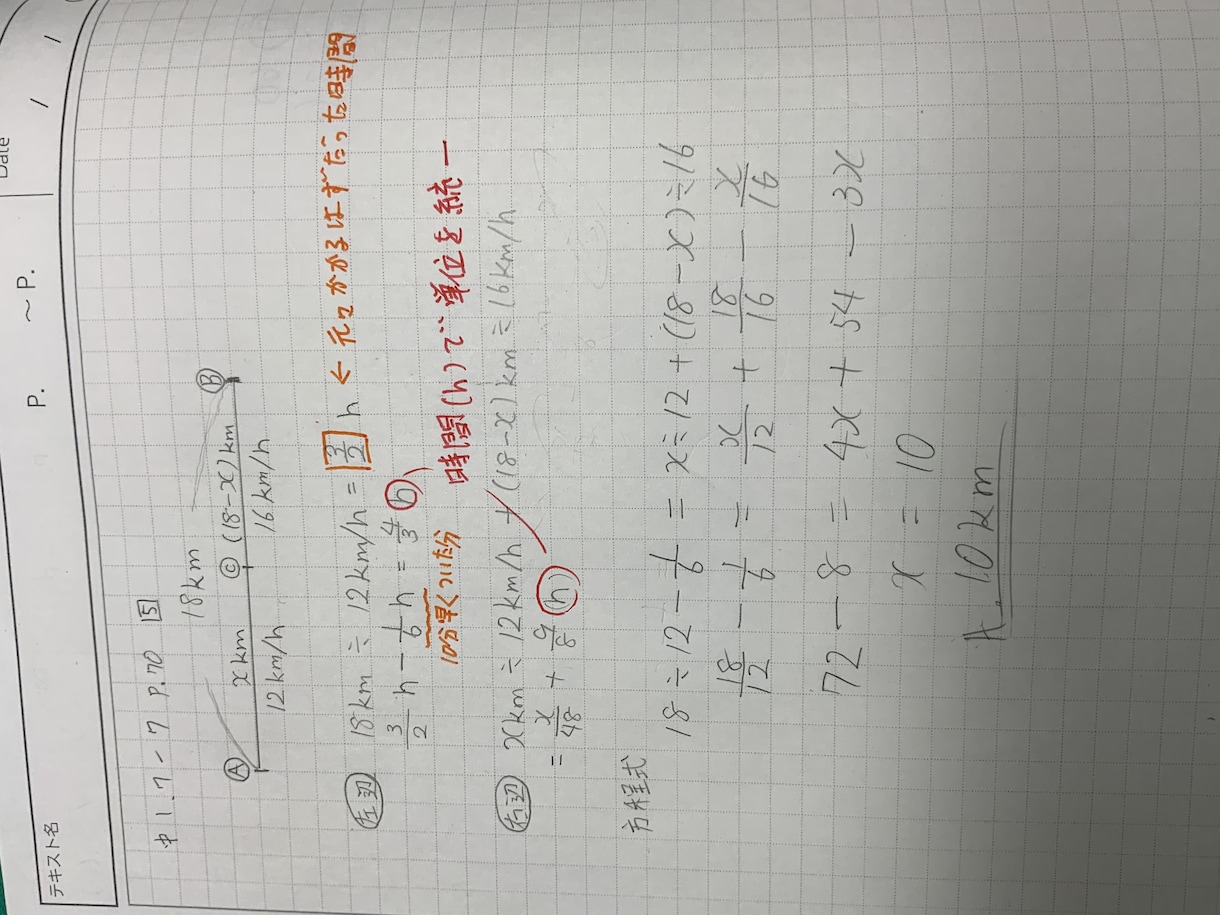 テキスト名
P. ～ P.
Date / /
中1.7-7 P.70 5
18km
A x km C (18-x)km B
12km/h 16km/h
左辺 18km ÷ 12km/h = 3/2 h ← 元々かかるはずだった時間
3/2 h - 1/6 h = 4/3 h
10分早くついた分
時間(h)で単位を統一
右辺 xkm ÷ 12km/h + (18-x)km ÷ 16km/h
= x/48 + 9/8 (h)
方程式
18 ÷ 12 - 1/6 = x ÷ 12 + (18 - x) ÷ 16
18/12 - 1/6 = x/12 + 18/16 - x/16
72 - 8 = 4x + 54 - 3x
x = 10
A. 10km